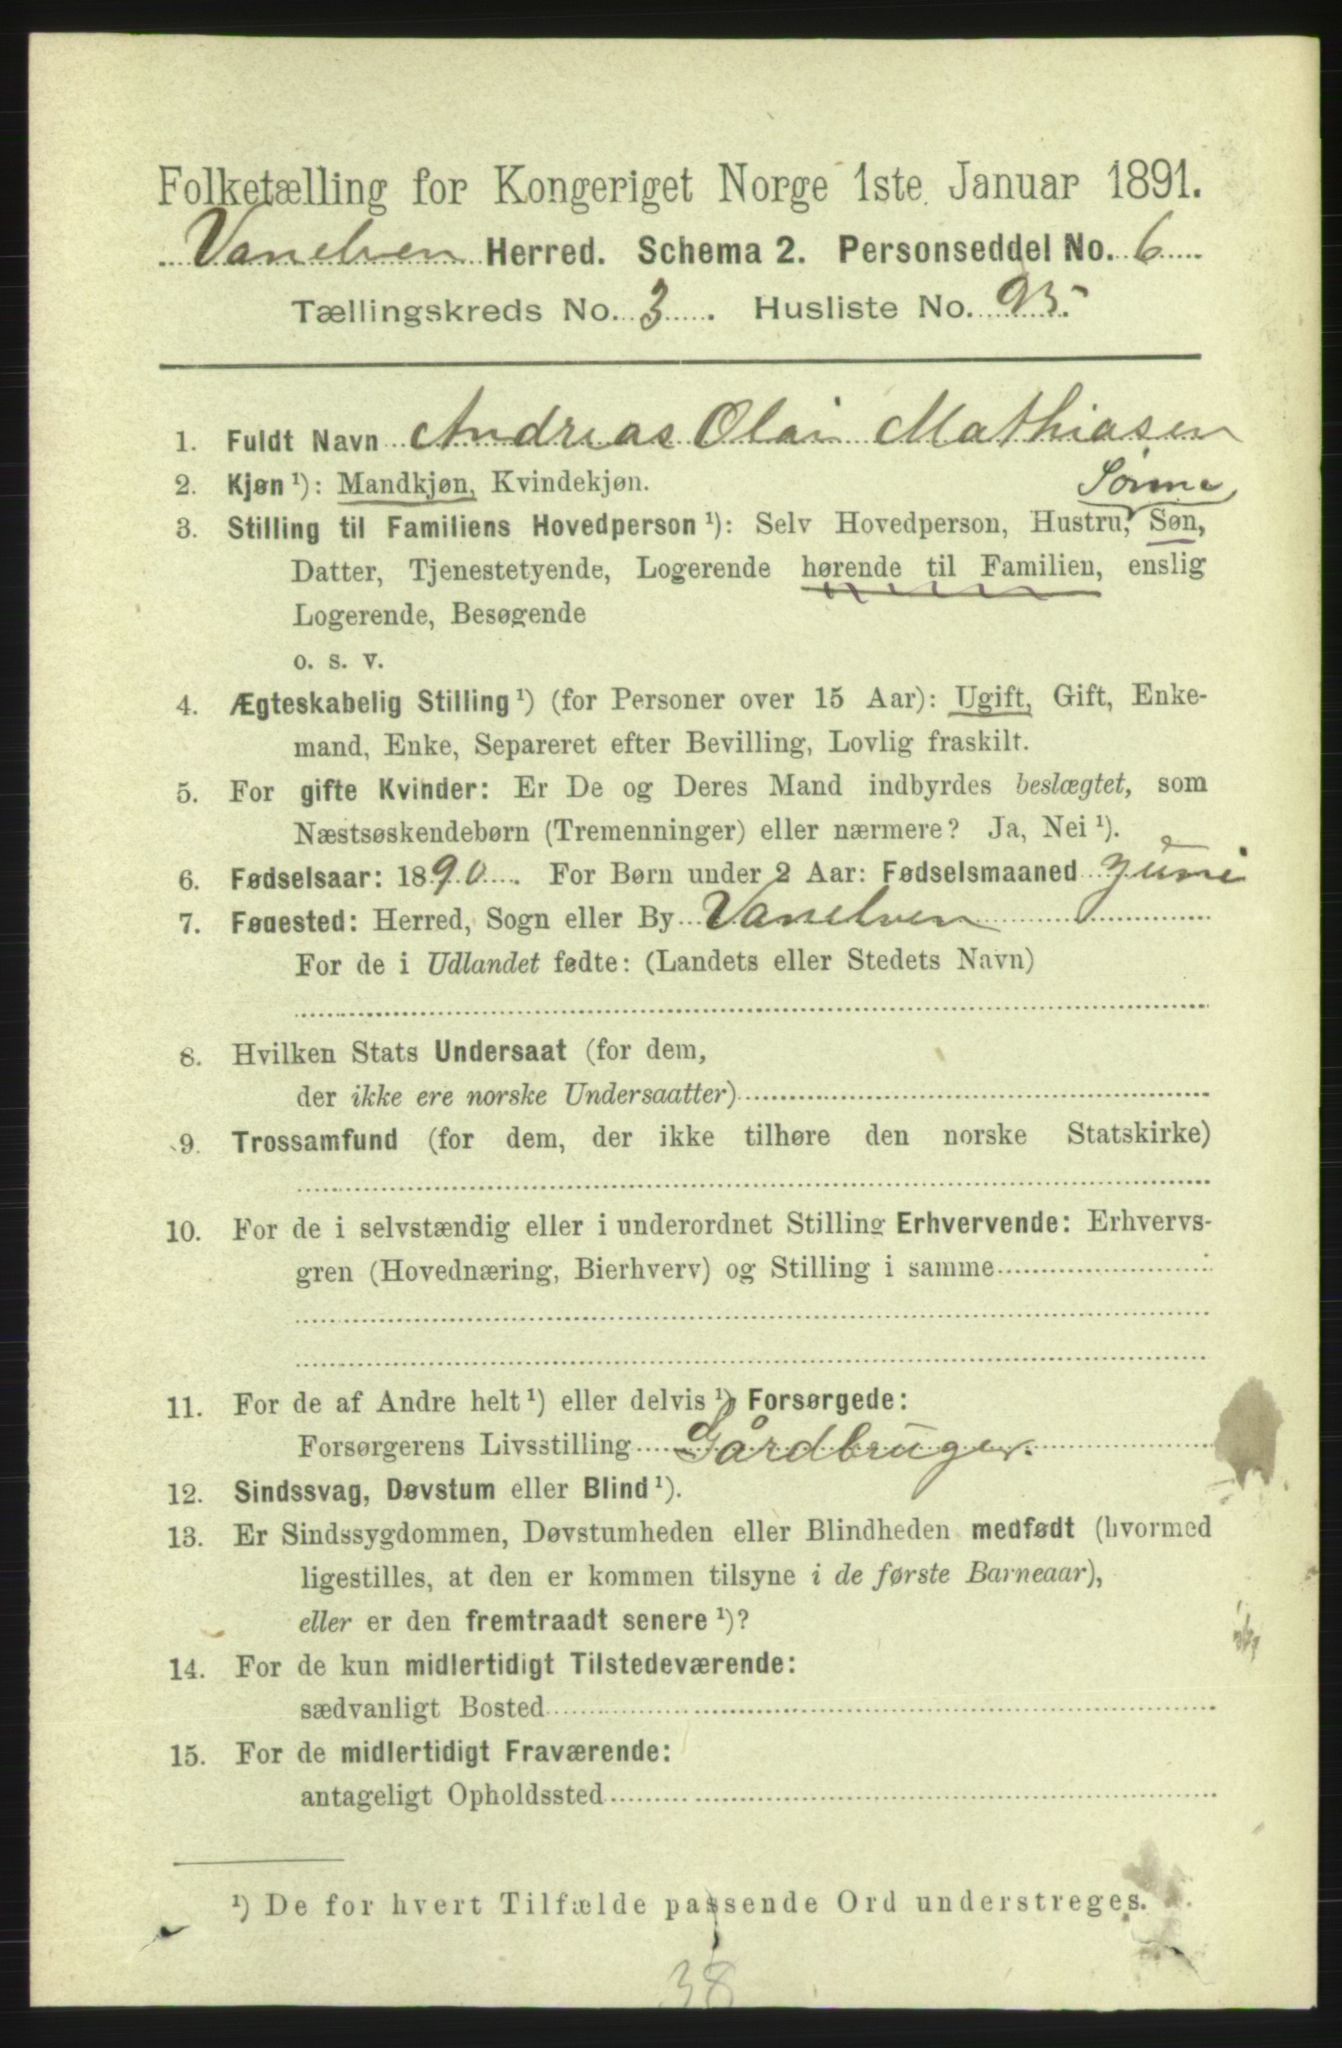 Folketælling for Kongeriget Norge 1ste Januar 1891.
Vanelven Herred. Schema 2. Personseddel No. 6
Tællingskreds No. 3. Husliste No. 95.
1. Fuldt Navn Andreas Olai Mathiasen
2. Kjøn ¹): Mandkjøn, Kvindekjøn.
3. Stilling til Familiens Hovedperson ¹): Selv Hovedperson, Hustru, Søn,
Datter, Tjenestetyende, Logerende hørende til Familien, enslig
Logerende, Besøgende
o. s. v.
4. Ægteskabelig Stilling ¹) (for Personer over 15 Aar): Ugift, Gift, Enke-
mand, Enke, Separeret efter Bevilling, Lovlig fraskilt.
5. For gifte Kvinder: Er De og Deres Mand indbyrdes beslægtet, som
Næstsøskendebørn (Tremenninger) eller nærmere? Ja, Nei ¹).
6. Fødselsaar: 1890. For Børn under 2 Aar: Fødselsmaaned Juni
7. Fødested: Herred, Sogn eller By Vanelven
For de i Udlandet fødte: (Landets eller Stedets Navn)
8. Hvilken Stats Undersaat (for dem,
der ikke ere norske Undersaatter)
9. Trossamfund (for dem, der ikke tilhøre den norske Statskirke)
10. For de i selvstændig eller i underordnet Stilling Erhvervende: Erhvervs-
gren (Hovednæring, Bierhverv) og Stilling i samme
11. For de af Andre helt ¹) eller delvis ¹) Forsørgede:
Forsørgerens Livsstilling Gårdbruger.
12. Sindssvag, Døvstum eller Blind ¹).
13. Er Sindssygdommen, Døvstumheden eller Blindheden medfødt (hvormed
ligestilles, at den er kommen tilsyne i de første Barneaar),
eller er den fremtraadt senere ¹)?
14. For de kun midlertidigt Tilstedeværende:
sædvanligt Bosted
15. For de midlertidigt Fraværende:
antageligt Opholdssted
¹) De for hvert Tilfælde passende Ord understreges.
38